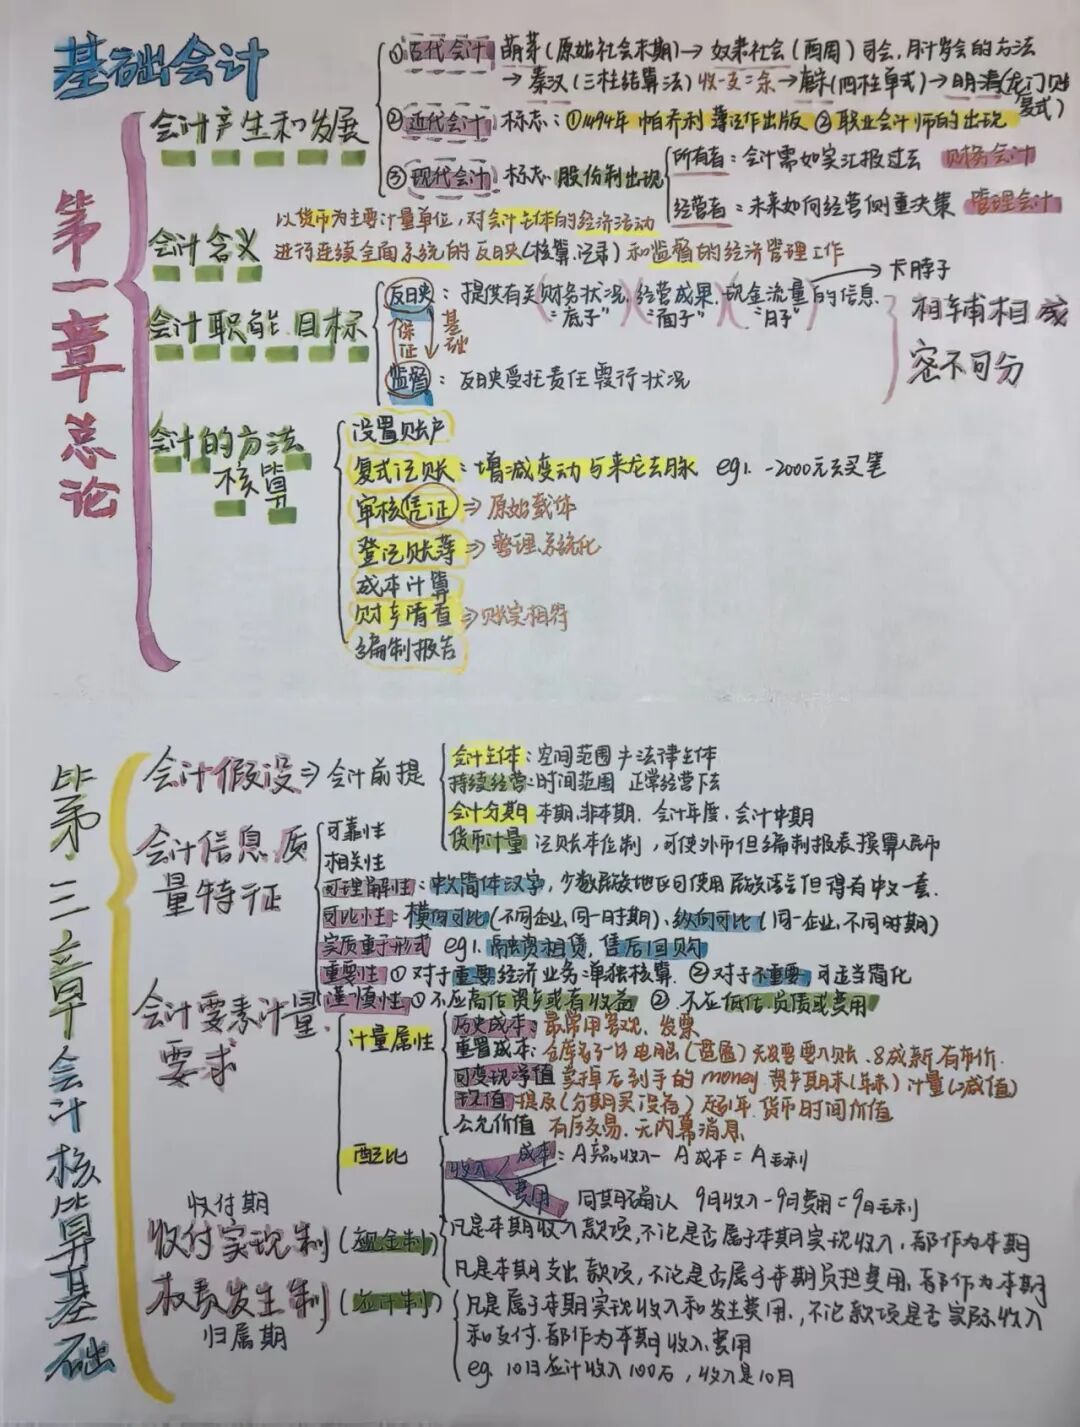 基础会计
第一章总论
会计产生和发展
①古代会计 萌芽(原始社会末期)→奴隶社会(西周)司会,月计岁会的方法
→秦汉(三柱结算法)收-支=余→唐宋(四柱单式)→明清(龙门账
复式)
②近代会计 标志:①1494年帕乔利著作出版②职业会计师的出现
③现代会计 标志 股份制出现
所有者:会计需如实汇报过去 财务会计
经营者:未来如何经营侧重决策 管理会计
会计含义
以货币为主要计量单位,对会计主体的经济活动
进行连续全面系统的反映(核算.记录)和监督的经济管理工作
会计职能.目标
反映:提供有关财务状况.经营成果.现金流量的信息.
"底子" "面子" "日子"
卡脖子
保证
基础
监督:反映受托责任履行状况
相辅相成
密不可分
会计的方法
核算
设置账户
复式记账:增减变动与来龙去脉 eg1. -2000元去买笔
审核凭证⇒原始载体
登记账簿⇒整理.系统化
成本计算
财产清查⇒账实相符
编制报告
第二章会计核算基础
会计假设⇒会计前提
会计主体:空间范围≠法律主体
持续经营:时间范围 正常经营下去
会计分期 本期.非本期.会计年度.会计中期
货币计量 记账本位制,可使外币但编制报表换算人民币
会计信息质
量特征
可靠性
相关性
可理解性:中文简体汉字,少数民族地区可使用民族语言但得有中文一套.
可比性:横向可比(不同企业,同一时期)、纵向可比(同一企业,不同时期)
实质重于形式 eg1.融资租赁,售后回购
重要性①对于重要经济业务单独核算.②对于不重要可适当简化
谨慎性①不应高估资产或者收益 ②不应低估负债或费用
会计要素计量.
要求
计量属性
历史成本:最常用客观、发票
重置成本:仓库多了一台电脑(盘盈)无发票要入账.8成新有市价.
可变现净值 卖掉后到手的money 资产期末(年末)计量(减值)
现值:提及(分期买设备)超1年.货币时间价值
公允价值 有序交易.无内幕消息
配比
收入
成本:A产品收入-A成本=A毛利
费用 同期确认 9月收入-9月费用=9月毛利
收付期
收付实现制(现金制)
凡是本期收入款项,不论是否属于本期实现收入,都作为本期
凡是本期支出款项,不论是否属于本期负担费用,都作为本期
权责发生制(应计制)
归属期
凡是属于本期实现收入和发生费用,不论款项是否实际收入
和支付.都作为本期收入.费用
eg.10日应计收入100万,收入是10月